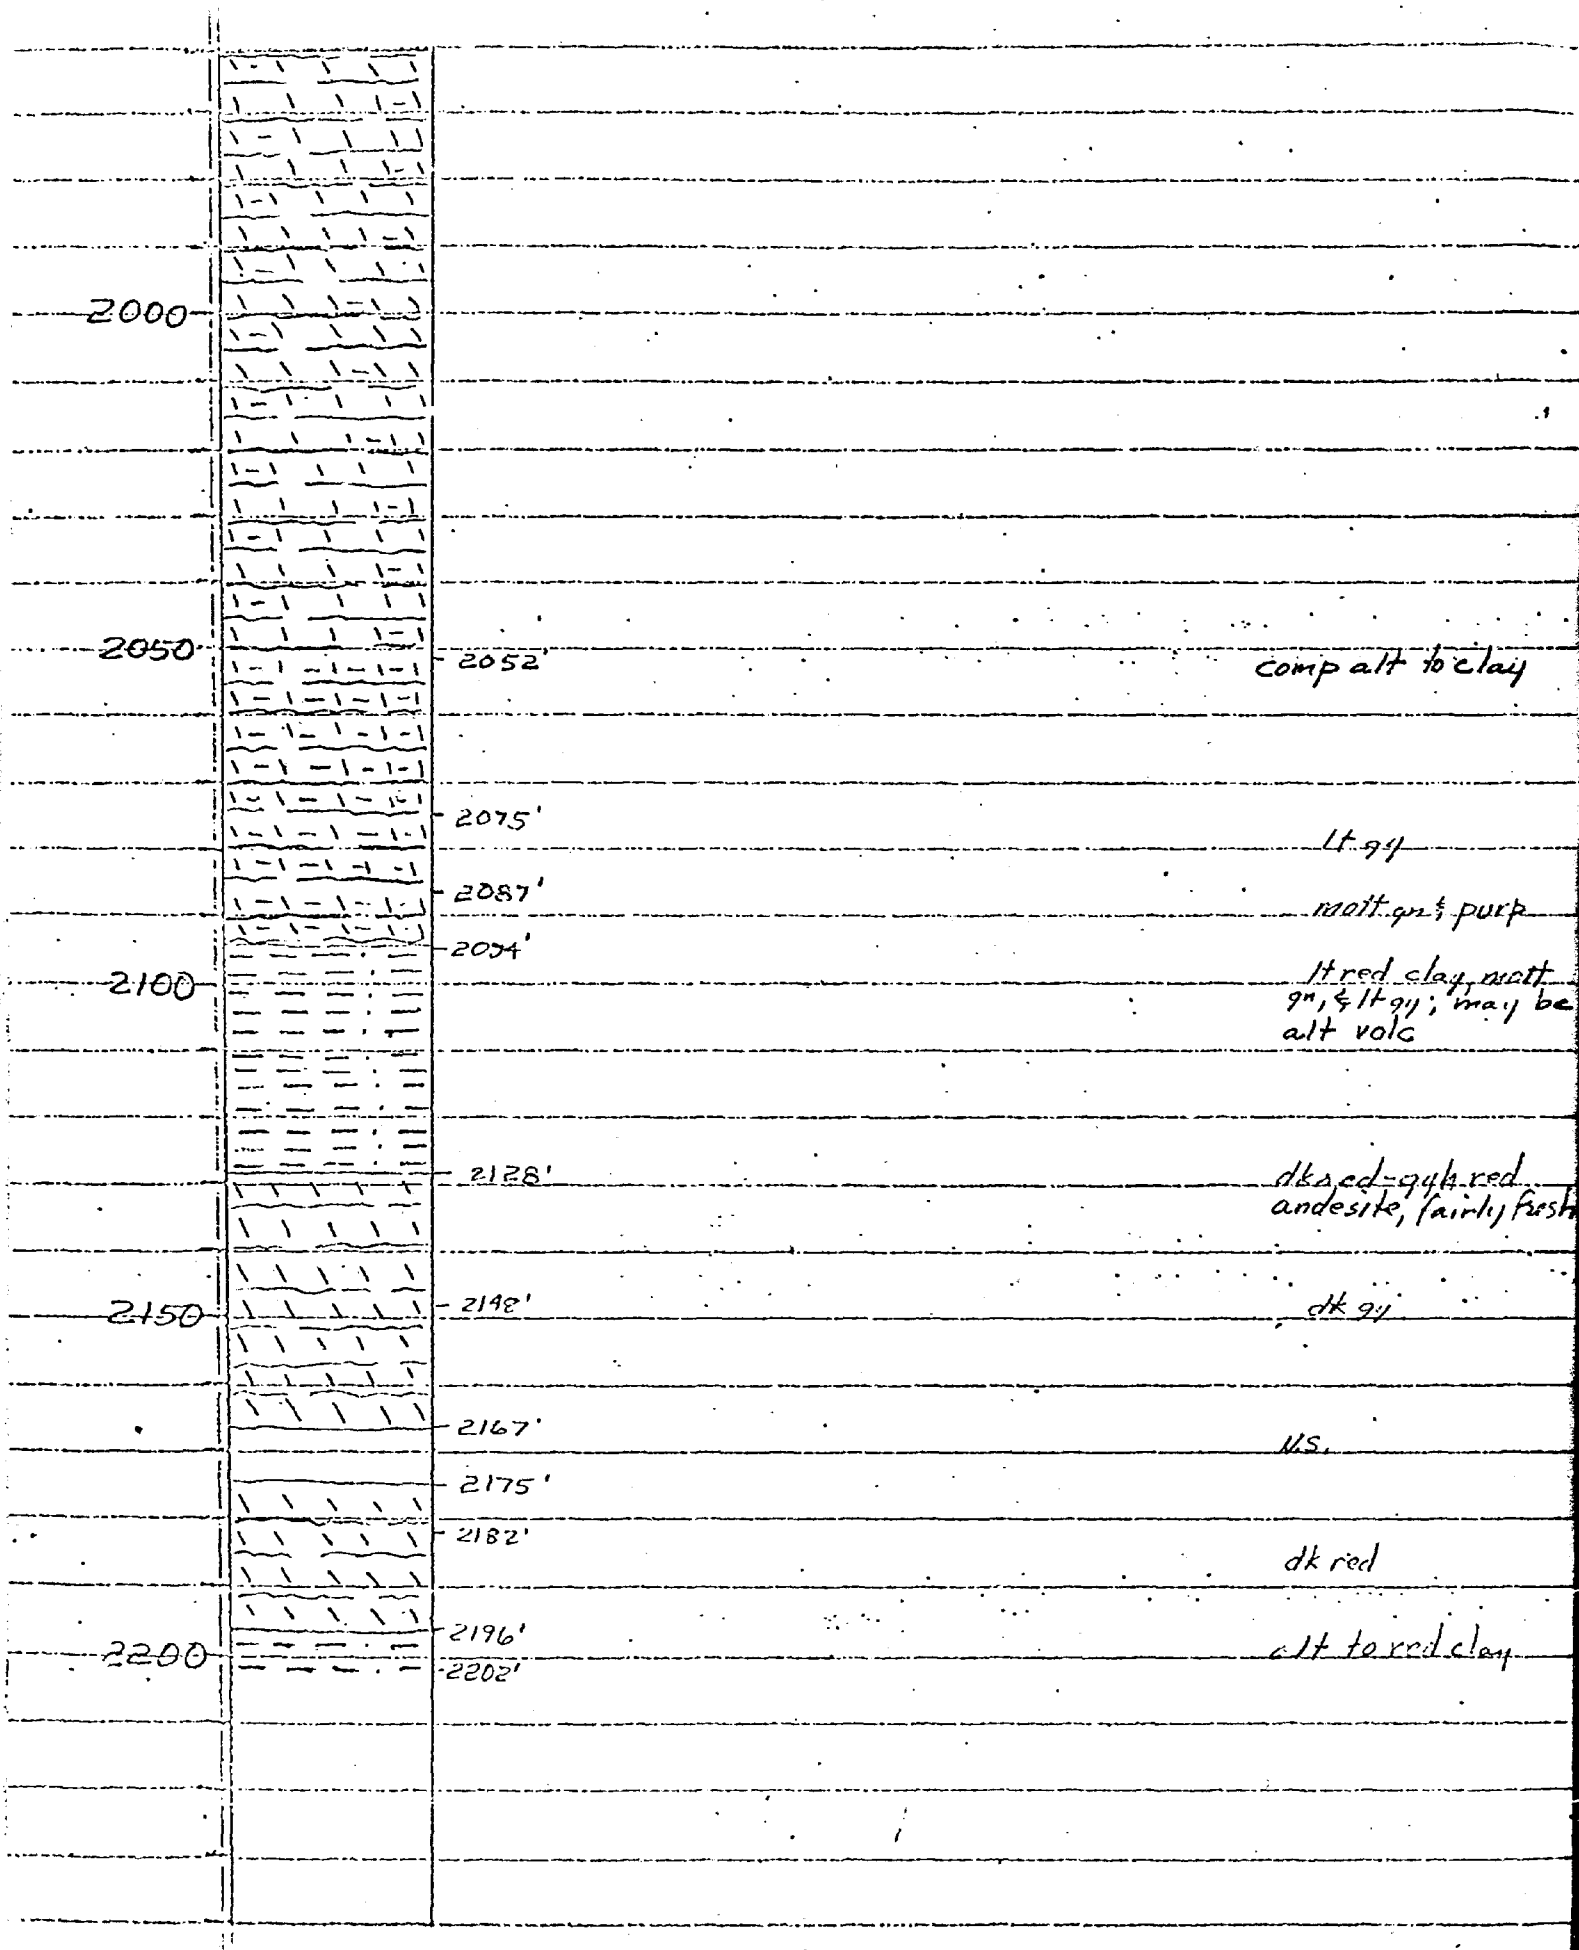 2000
2050
2052'
comp alt to clay
2075'
lt gy
2087'
mott gn & purp
2094'
2100
lt red clay, mott
gn, & lt gy; may be
alt volc
2128'
dk red-gyh red
andesite, fairly fresh
2148'
2150
dk gy
2167'
N.S.
2175'
2182'
dk red
2196'
2200
alt to red clay
2202'